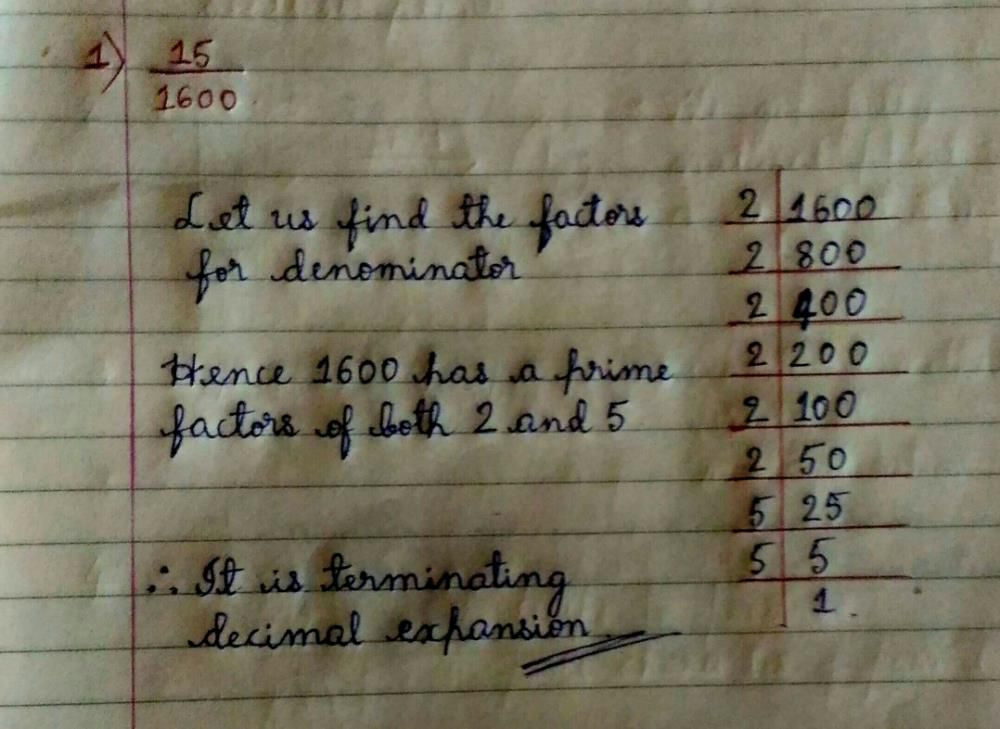 1) 15
1600
Let us find the factors
for denominator
Hence 1600 has a prime
factors of both 2 and 5
∴ It is terminating
decimal expansion
2 1600
2 800
2 400
2 200
2 100
2 50
5 25
5 5
1